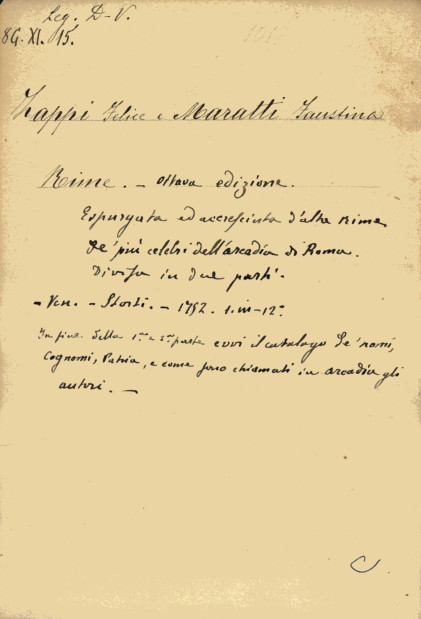 Leg. D-V.
86. XI. 15.
Zappi Felice e Maratti Faustina
Rime. - Ottava edizione.
Espurgata ed accresciuta d'altre Rime
de' più celebri dell'arcadia di Roma.
Divisa in due parti.
- Ven. - Storti. - 1752. t. in-12°
In fine della 1ma e 2da parte evvi il catalogo de' nomi,
Cognomi, Patria, e come sono chiamati in arcadia gli
autori. -